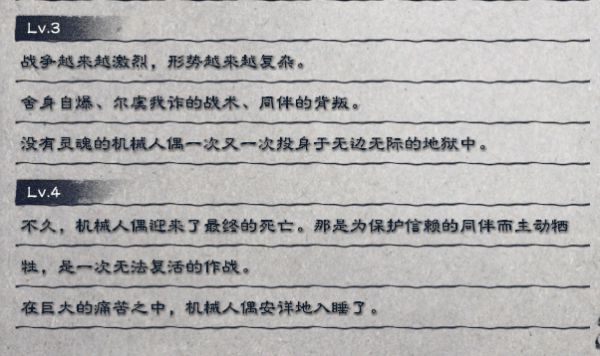 Lv.3
战争越来越激烈，形势越来越复杂。
舍身自爆、尔虞我诈的战术、同伴的背叛。
没有灵魂的机械人偶一次又一次投身于无边无际的地狱中。
Lv.4
不久，机械人偶迎来了最终的死亡。那是为保护信赖的同伴而主动牺
牲，是一次无法复活的作战。
在巨大的痛苦之中，机械人偶安详地入睡了。